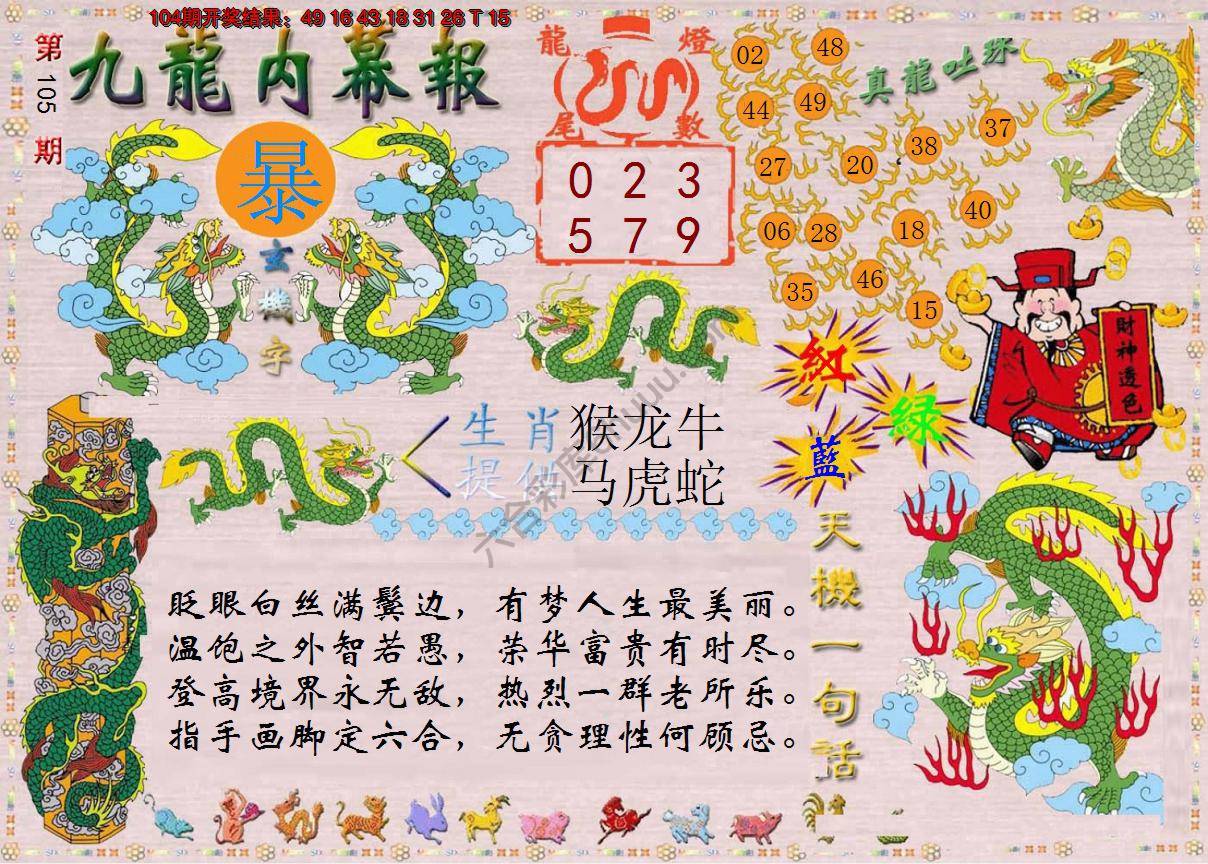 104期开奖结果：49 16 43 18 31 26 T 15
第105期
九龍内幕報
龍 燈
尾 數
0 2 3
5 7 9
真龍吐珠
02
48
44
49
27
20
38
37
06
28
18
40
35
46
15
暴
玄機字
財神透色
紅
綠
藍
生肖
提供
猴龙牛
马虎蛇
天機一句話
眨眼白丝满鬓边，有梦人生最美丽。
温饱之外智若愚，荣华富贵有时尽。
登高境界永无敌，热烈一群老所乐。
指手画脚定六合，无贪理性何顾忌。